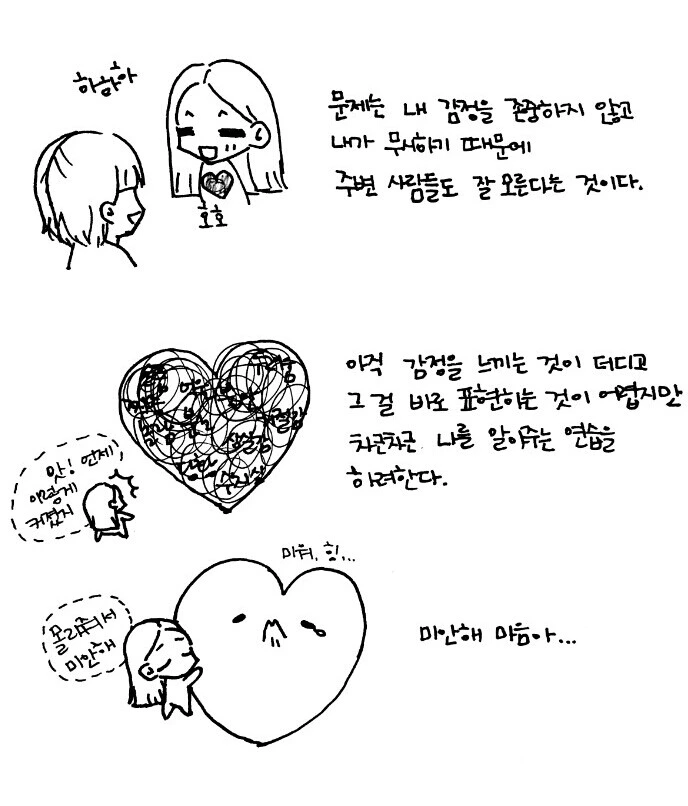 하하하
호호
문제는 내 감정을 존중하지 않고
내가 무시하기 때문에
주변 사람들도 잘 모른다는 것이다.
아직 감정을 느끼는 것이 더디고
그걸 바로 표현하는 것이 어렵지만
차근차근 나를 알아주는 연습을
하려한다.
두려움
상실감
수치심
앗! 언제,
이렇게
커졌지
미워, 힝...
몰라줘서
미안해
미안해 마음아...